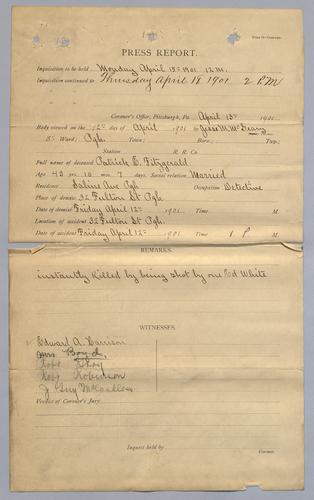 PRESS REPORT.
Inquisition to be held Monday April 15th 1901 12 M.
Inquisition continued to Thursday April 18 1901 2 P.M
Coroner's Office, Pittsburgh, Pa. April 13th 1901
Body viewed on the 12th day of April 1901 by Jesse M. McGeary
Ward; Pgh. Town; Boro.; Twp.;
Station R. R. Co.
Full name of deceased Patrick E. Fitzgerald
Age 43 yrs. 10 mos. 7 days. Social relation Married
Residence Sabine Ave Pgh Occupation Detective
Place of demise 32 Fulton St Pgh.
Date of demise Friday April 12th 1901. Time M.
Location of accident 32 Fulton St Pgh.
Date of accident Friday April 12th 1901 Time 1 P M.
REMARKS.
instantly killed by being shot by one Ed White
WITNESSES.
Edward A. Harrison
Mrs. Boyd,
Robt
Robt Robinson
J Guy McCandless
Verdict of Coroner's Jury
Inquest held by Coroner.